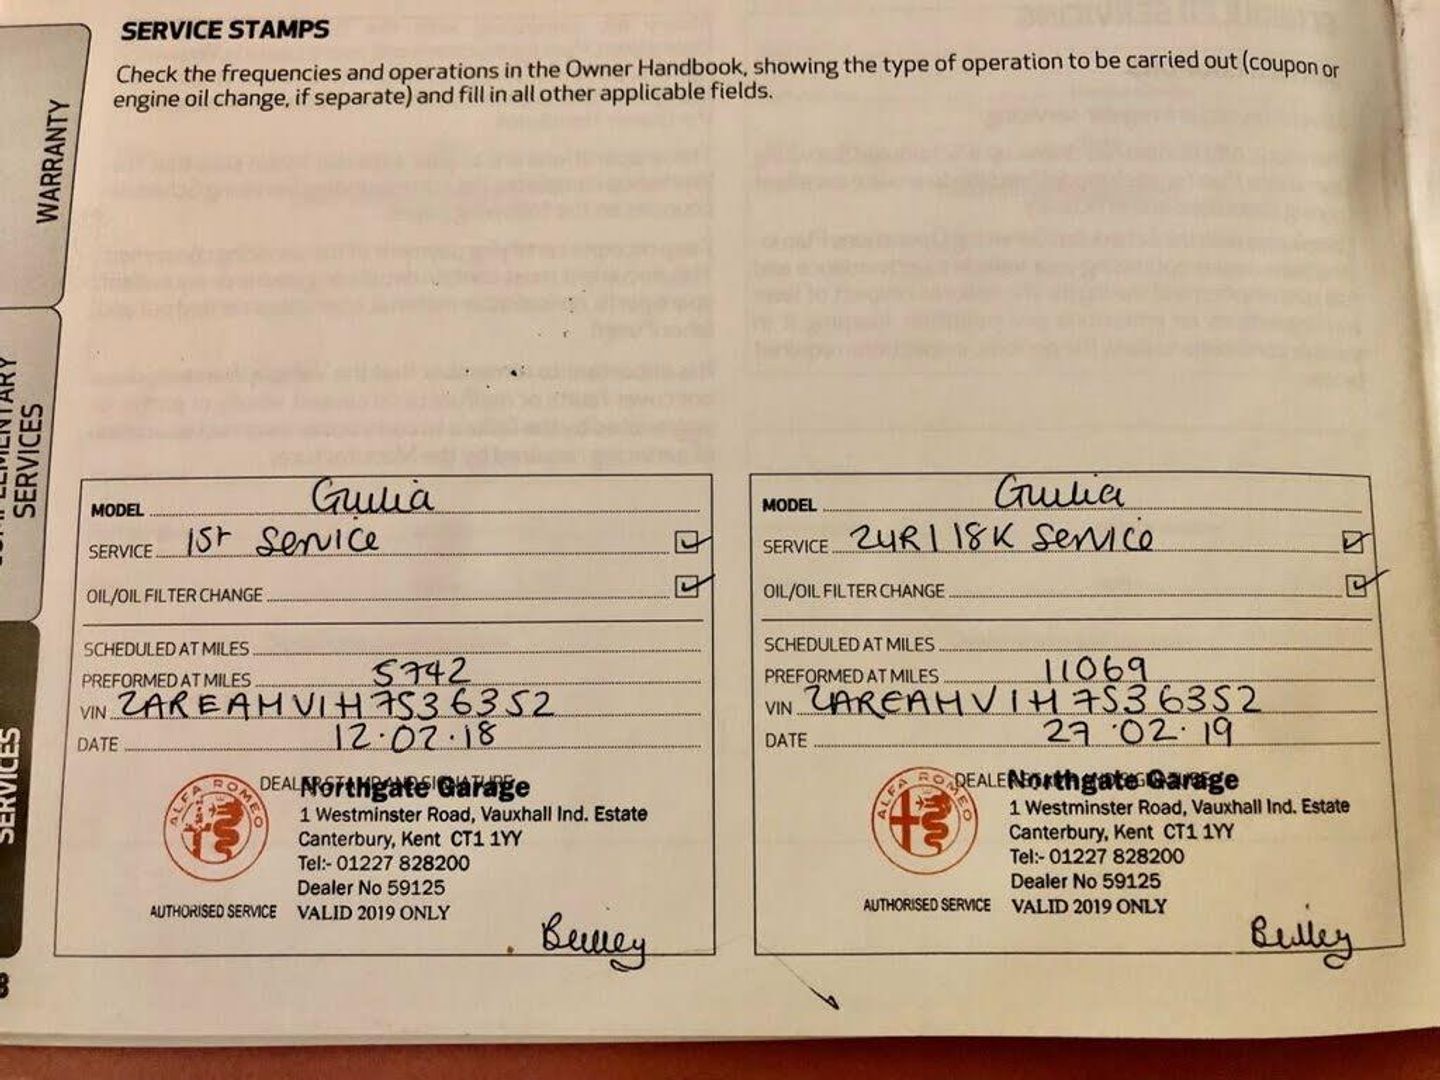 SERVICE STAMPS
Check the frequencies and operations in the Owner Handbook, showing the type of operation to be carried out (coupon or
engine oil change, if separate) and fill in all other applicable fields.
WARRANTY
SERVICES
SERVICES
MODEL Giulia
SERVICE 1st Service
OIL/OIL FILTER CHANGE
SCHEDULED AT MILES
PREFORMED AT MILES 5742
VIN ZAREAHV1H7536352
DATE 12.02.18
DEALER STAMP AND SIGNATURE
Northgate Garage
1 Westminster Road, Vauxhall Ind. Estate
Canterbury, Kent CT1 1YY
Tel:- 01227 828200
Dealer No 59125
AUTHORISED SERVICE VALID 2019 ONLY
ALFA ROMEO
MODEL Giulia
SERVICE 2YR | 18K Service
OIL/OIL FILTER CHANGE
SCHEDULED AT MILES
PREFORMED AT MILES 11069
VIN ZAREAHV1H7536352
DATE 27.02.19
DEALER STAMP AND SIGNATURE
Northgate Garage
1 Westminster Road, Vauxhall Ind. Estate
Canterbury, Kent CT1 1YY
Tel:- 01227 828200
Dealer No 59125
AUTHORISED SERVICE VALID 2019 ONLY
ALFA ROMEO